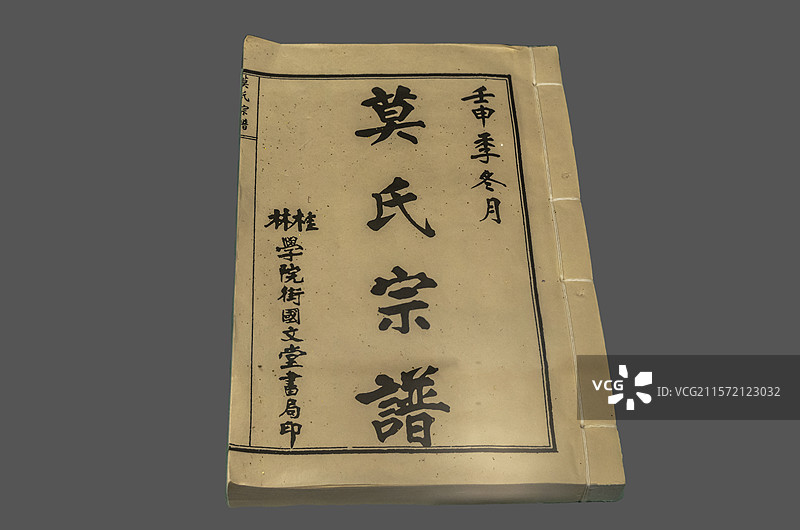 壬申季冬月
莫氏宗譜
桂林學院街國文堂書局印
莫氏宗譜
VCG
ID:VCG211572123032